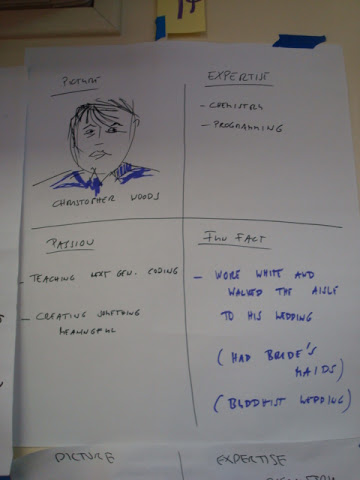 14
PICTURE
CHRISTOPHER WOODS
EXPERTISE
- CHEMISTRY
- PROGRAMMING
PASSION
- TEACHING NEXT GEN. CODING
- CREATING SOMETHING
MEANINGFUL
FUN FACT
- WORE WHITE AND
WALKED THE AISLE
TO HIS WEDDING
(HAD BRIDE'S
MAIDS)
(BUDDHIST WEDDING)
PICTURE
EXPERTISE